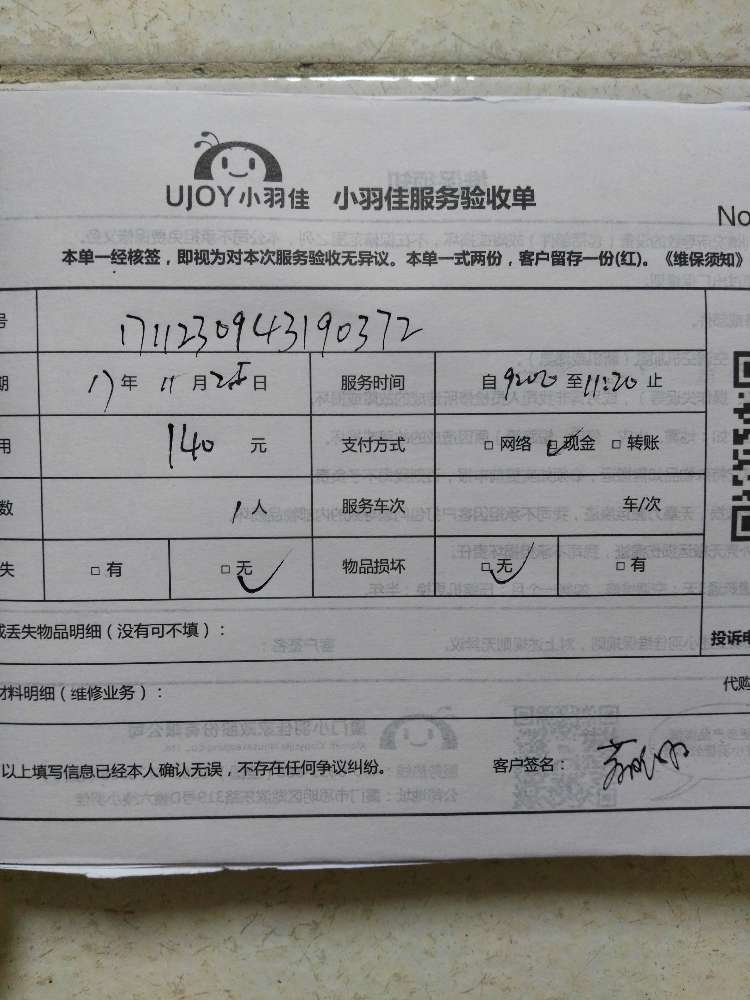 UJOY小羽佳 小羽佳服务验收单
No
本单一经核签，即视为对本次服务验收无异议。本单一式两份，客户留存一份(红)。《维保须知》
号 1711230943190372
期 17年 11月25日 服务时间 自9:00至11:20止
用 140 元 支付方式 □网络 □现金 □转账
数 1人 服务车次 车/次
失 □有 □无 物品损坏 □无 □有
或丢失物品明细（没有可不填）： 投诉电
材料明细（维修业务）： 代购
以上填写信息已经本人确认无误，不存在任何争议纠纷。 客户签名：